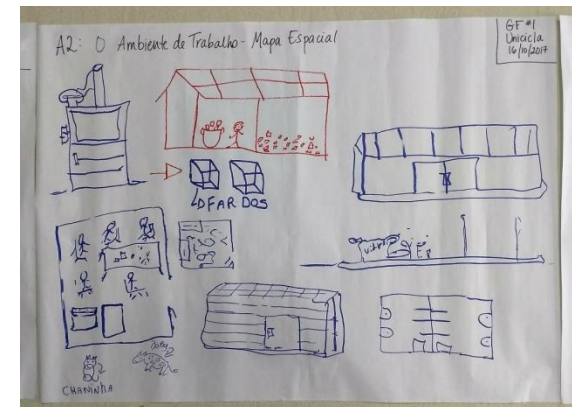 A2: O Ambiente de Trabalho - Mapa Espacial
GF #1
Unicicla
16/10/2017
FARDOS
CHANINHA